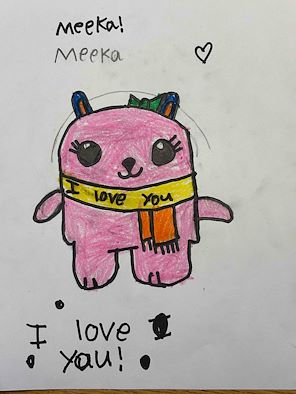 Meeka!
Meeka
I love You
I love
yau!